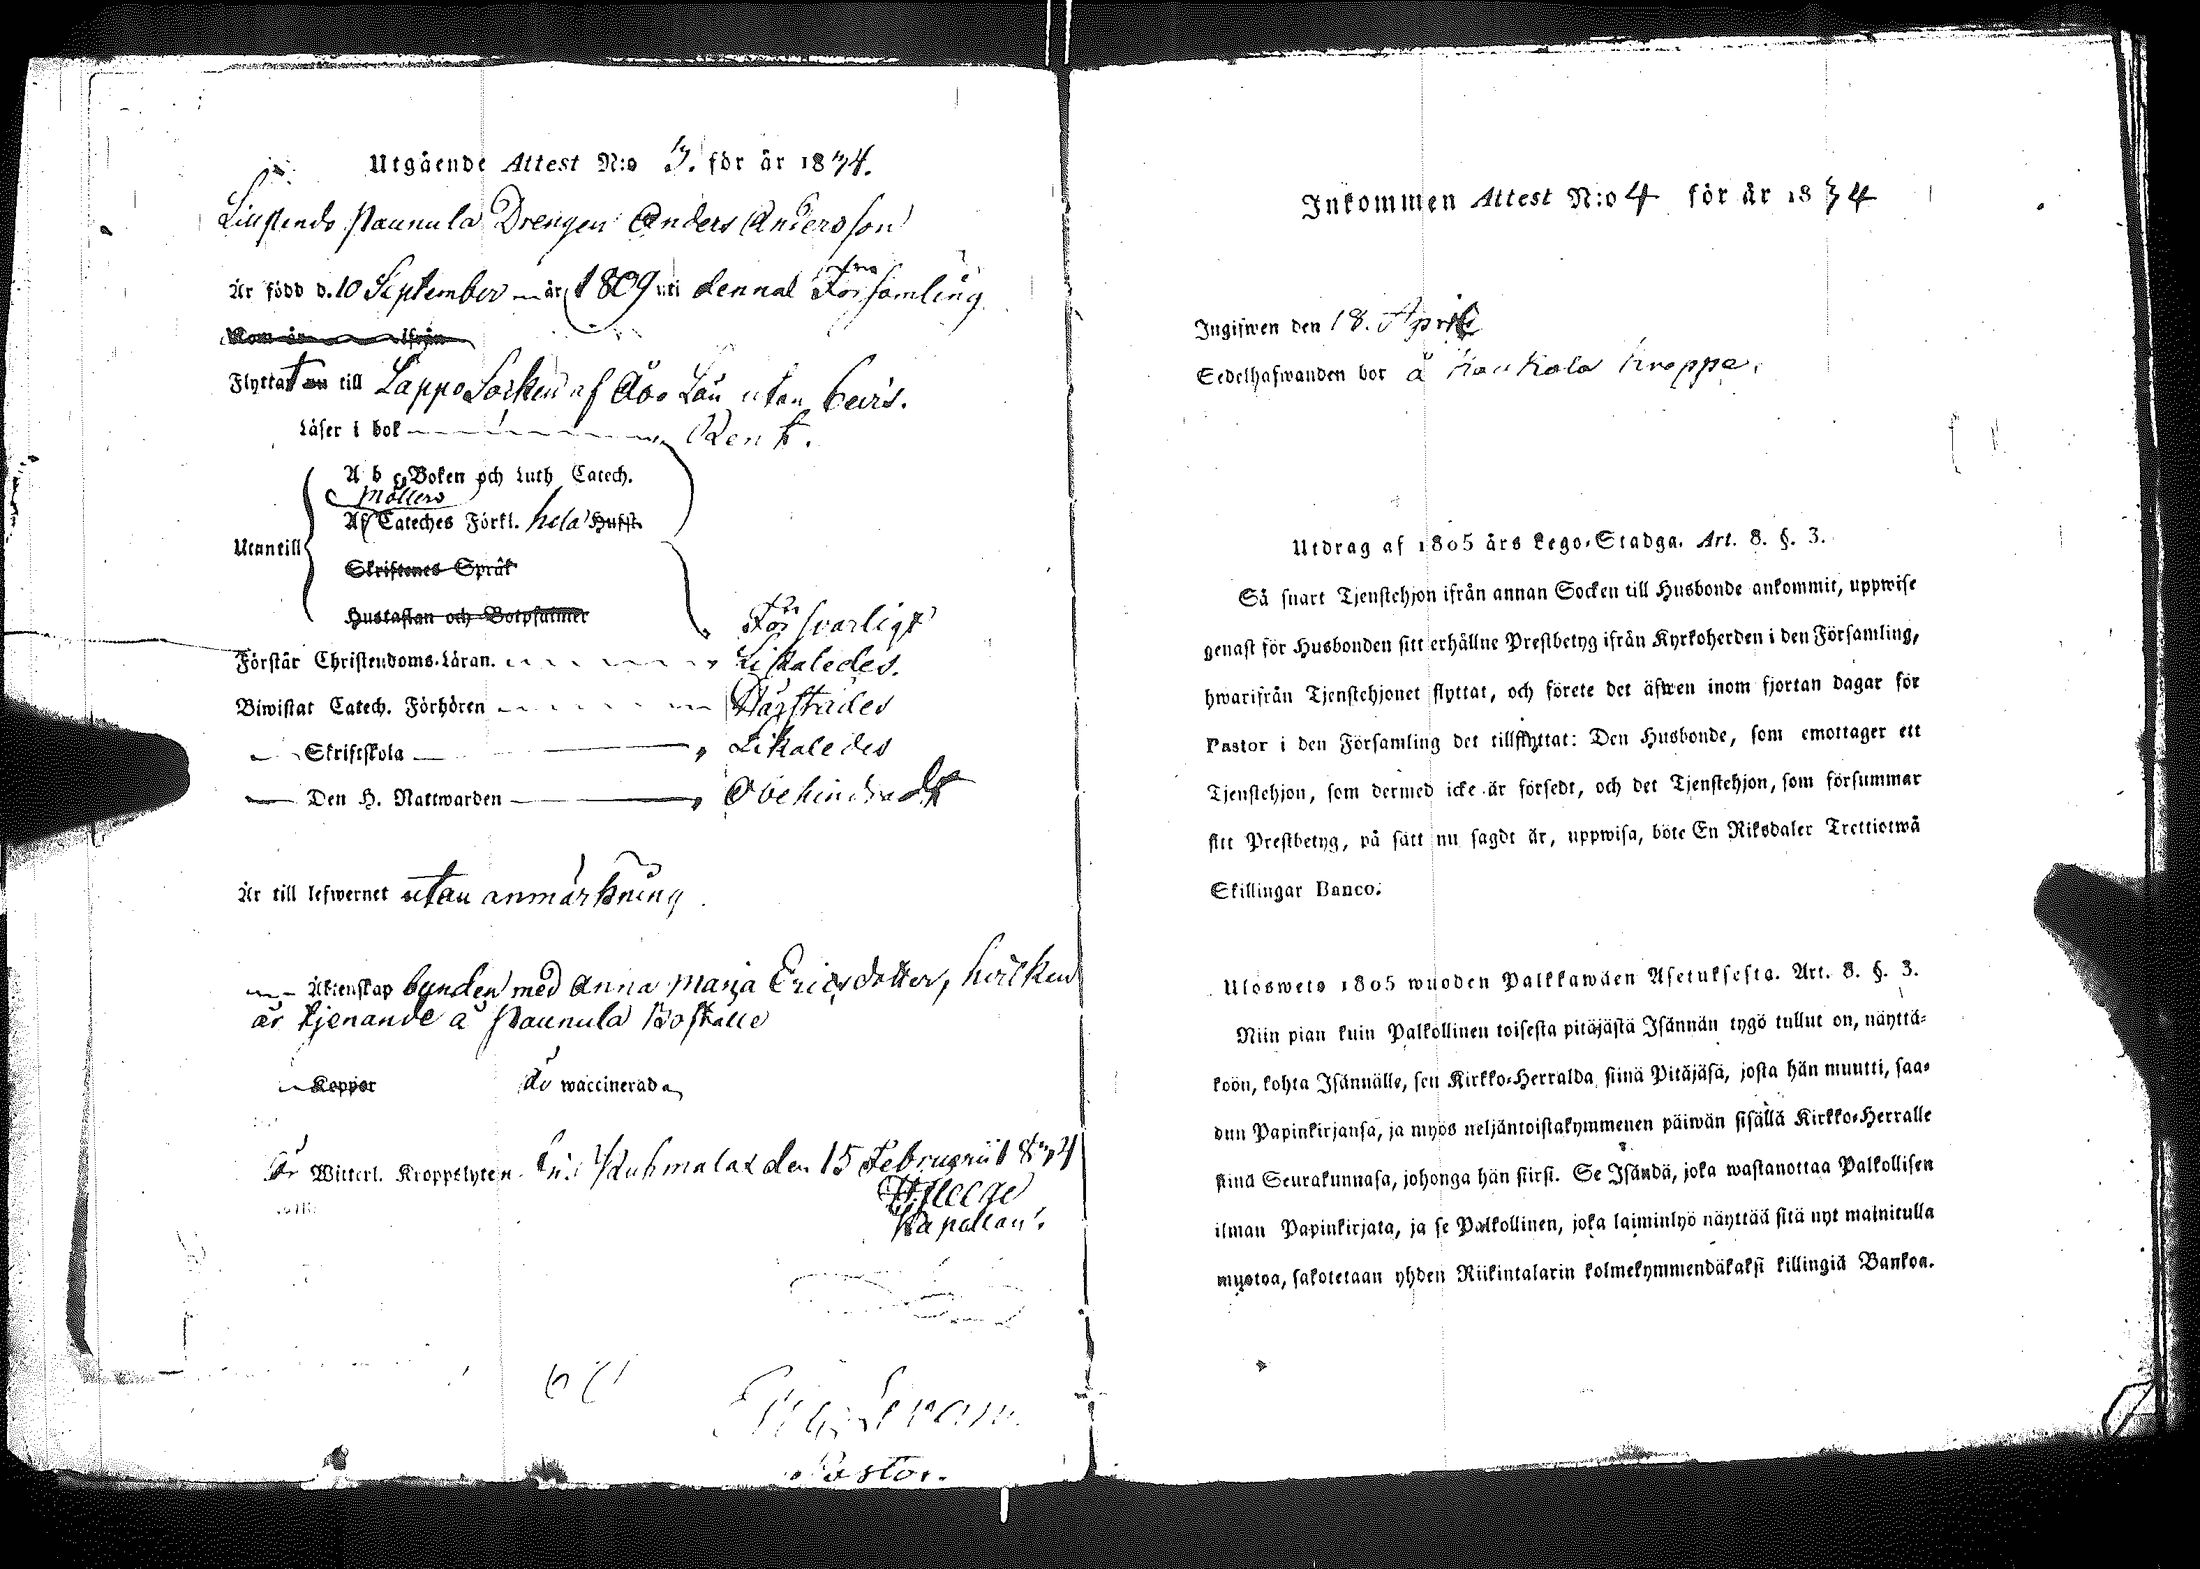 Utgående Attest N:o 3. för år 1834.
Paunula Drengen Anders Andersson
Är född d. 10 September — år 1809 uti denna Församling
Kom år ifrån
Flyttat nu till Lappo Socken af Åbo Län utan bevis.
Läser i bok — Rent.
A b c Boken och Luth Catech.
Möllers
Af Cateches Förkl. hela Hufst.
Utantill
Skriftenes Språk
Hustaflan och Botpsalmer
Försvarligt
Förstår Christendoms-Läran. Likaledes.
Biwistat Catech. Förhören Därstädes
— Skriftskola — Likaledes
— Den H. Nattwarden — Obehindradt
Är till lefwernet utan anmärkning
— Äktenskap bunden med Anna Maria Ericsdotter, hvilken
är tjenande å Paunula Boställe
Koppor Är waccinerad
Är Witterl. Kroppslyten. den 15 Februarii 1834
Kapellan.
Pastor.
Inkommen Attest N:o 4 för år 1834
Ingifwen den 18. April
Sedelhafwanden bor å Kaukola Kroppa.
Utdrag af 1805 års Lego-Stadga. Art. 8. §. 3.
Så snart Tjenstehjon ifrån annan Socken till Husbonde ankommit, uppwise
genast för Husbonden sitt erhållne Prestbetyg ifrån Kyrkoherden i den Församling,
hwarifrån Tjenstehjonet flyttat, och förete det äfwen inom fjortan dagar för
Pastor i den Församling det tillflyttat: Den Husbonde, som emottager ett
Tjenstehjon, som dermed icke är försedt, och det Tjenstehjon, som försummar
sitt Prestbetyg, på sätt nu sagdt är, uppwisa, böte En Riksdaler Trettiotwå
Skillingar Banco.
Uloswets 1805 wuoden Palkkawäen Asetuksesta. Art. 8. §. 3.
Niin pian kuin Palkollinen toisesta pitäjästä Isännän tygö tullut on, näyttä-
köön, kohta Isännälle, sen Kirkko-Herralda siinä Pitäjäsä, josta hän muutti, saa-
dun Papinkirjansa, ja myös neljäntoistakymmenen päiwän sisällä Kirkko-Herralle
siinä Seurakunnasa, johonga hän siirsi. Se Isändä, joka wastanottaa Palkollisen
ilman Papinkirjata, ja se Palkollinen, joka laiminlyö näyttää sitä nyt mainitulla
muotoa, sakotetaan yhden Riikintalarin kolmekymmendäkaksi killingiä Bankoa.